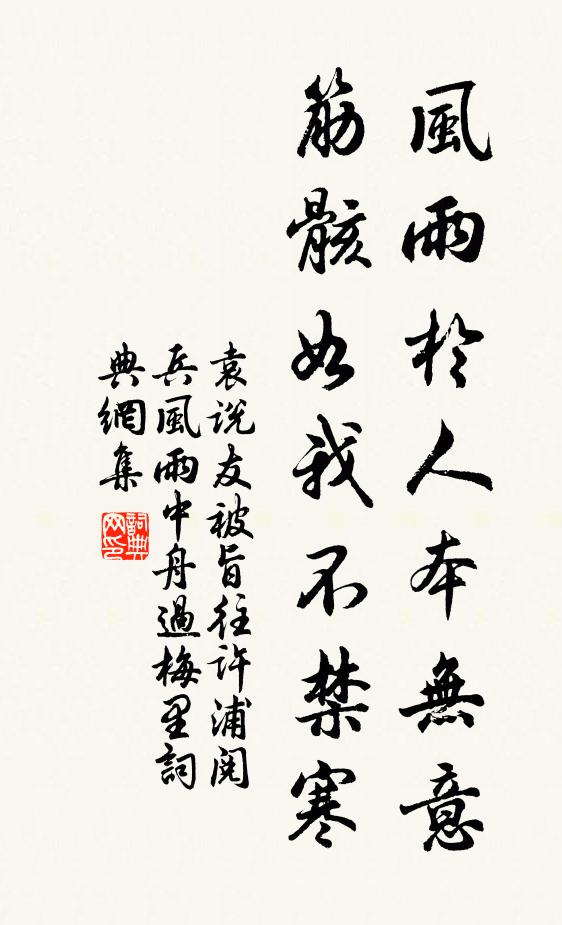 風雨於人本無意
筋骸如我不禁寒
袁說友被旨往許浦閱
兵風雨中舟過梅里詞
典網集
詞典网印